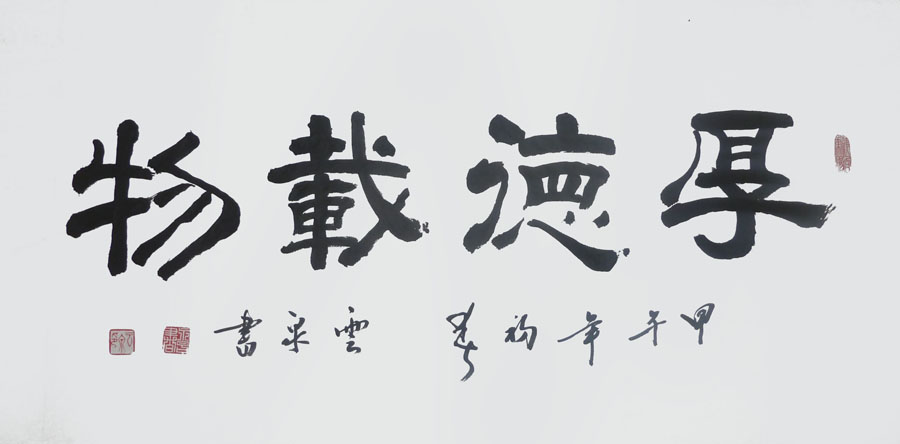 厚德載物
甲午年初春 雲泉書